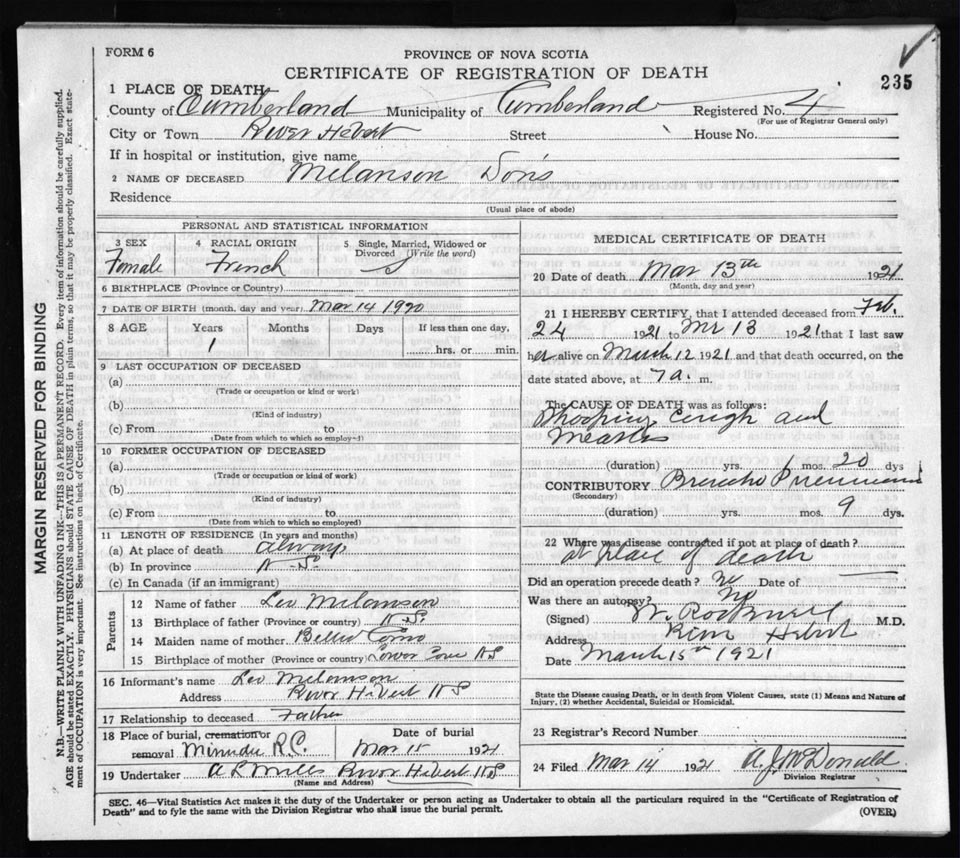 FORM 6
PROVINCE OF NOVA SCOTIA
CERTIFICATE OF REGISTRATION OF DEATH
235
1 PLACE OF DEATH
County of Cumberland Municipality of Cumberland Registered No. 4
(For use of Registrar General only)
City or Town River Hebert Street House No.
If in hospital or institution, give name
2 NAME OF DECEASED Melanson Doris
Residence
(Usual place of abode)
PERSONAL AND STATISTICAL INFORMATION
3 SEX Female
4 RACIAL ORIGIN French
5 Single, Married, Widowed or Divorced (Write the word) S
6 BIRTHPLACE (Province or Country)
7 DATE OF BIRTH (month, day and year) Mar 14 1920
8 AGE Years Months Days If less than one day,
1 hrs. or min.
9 LAST OCCUPATION OF DECEASED
(a)
(Trade or occupation or kind or work)
(b)
(Kind of industry)
(c) From to
(Date from which to which so employed)
10 FORMER OCCUPATION OF DECEASED
(a)
(Trade or occupation of kind of work)
(b)
(Kind of industry)
(c) From to
(Date from which to which so employed)
11 LENGTH OF RESIDENCE (In years and months)
(a) At place of death always
(b) In province N-S.
(c) In Canada (if an immigrant)
Parents
12 Name of father Leo Melanson
13 Birthplace of father (Province or country) N.S.
14 Maiden name of mother Como
15 Birthplace of mother (Province or country) Lower Cove NS
16 Informant's name Leo Melanson
Address River Hebert NS
17 Relationship to deceased Father
18 Place of burial, cremation or Date of burial
removal Minudie R.C. Mar 15 1921
19 Undertaker A L Mills River Hebert NS
(Name and Address)
MEDICAL CERTIFICATE OF DEATH
20 Date of death Mar 13th 1921
(Month, day and year)
21 I HEREBY CERTIFY, that I attended deceased from Feb.
24 1921 to Mr 13 1921 that I last saw
her alive on March 12 1921 and that death occurred, on the
date stated above, at 7 a. m.
The CAUSE OF DEATH was as follows:
Whooping Cough and
Measles
(duration) yrs. mos. 20 dys
CONTRIBUTORY Broncho Pneumonia
(Secondary)
(duration) yrs. mos. 9 dys.
22 Where was disease contracted if not at place of death?
at place of death
Did an operation precede death? no Date of
Was there an autopsy? No
(Signed) W. Rockwell M.D.
Address River Hebert
Date March 15th 1921
State the Disease causing Death, or in death from Violent Causes, state (1) Means and Nature of
Injury, (2) whether Accidental, Suicidal or Homicidal.
23 Registrar's Record Number
24 Filed Mar 14 1921 A. J. McDonald
Division Registrar
SEC. 46—Vital Statistics Act makes it the duty of the Undertaker or person acting as Undertaker to obtain all the particulars required in the "Certificate of Registration of
Death" and to fyle the same with the Division Registrar who shall issue the burial permit.
(OVER)
MARGIN RESERVED FOR BINDING
N.B.—WRITE PLAINLY WITH UNFADING INK—THIS IS A PERMANENT RECORD. Every item of information should be carefully supplied.
AGE should be stated EXACTLY. PHYSICIANS should STATE CAUSE OF DEATH in plain terms, so that it may be properly classified. Exact state-
ment of OCCUPATION is very important. See instructions on back of Certificate.